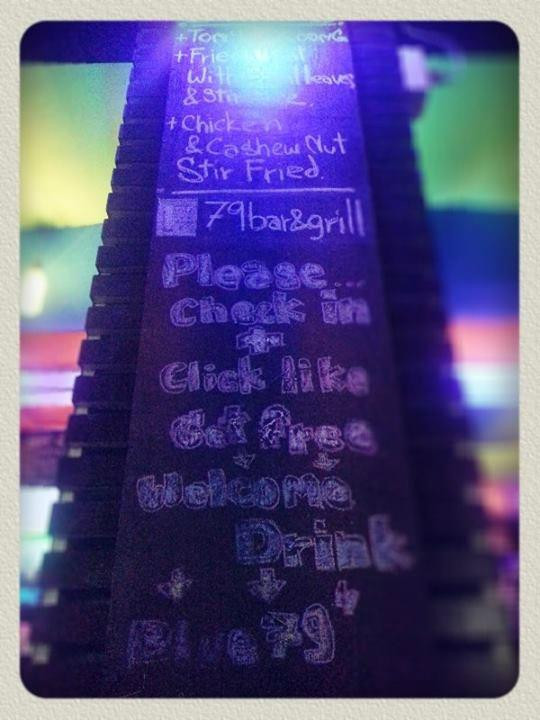 + Tom
+ Fried
With leaves
+ Chicken
& Cashew Nut
Stir Fried.
79bar&grill
Please...
Check in
+
Click like
Get free
Welcome
Drink
Blue 79